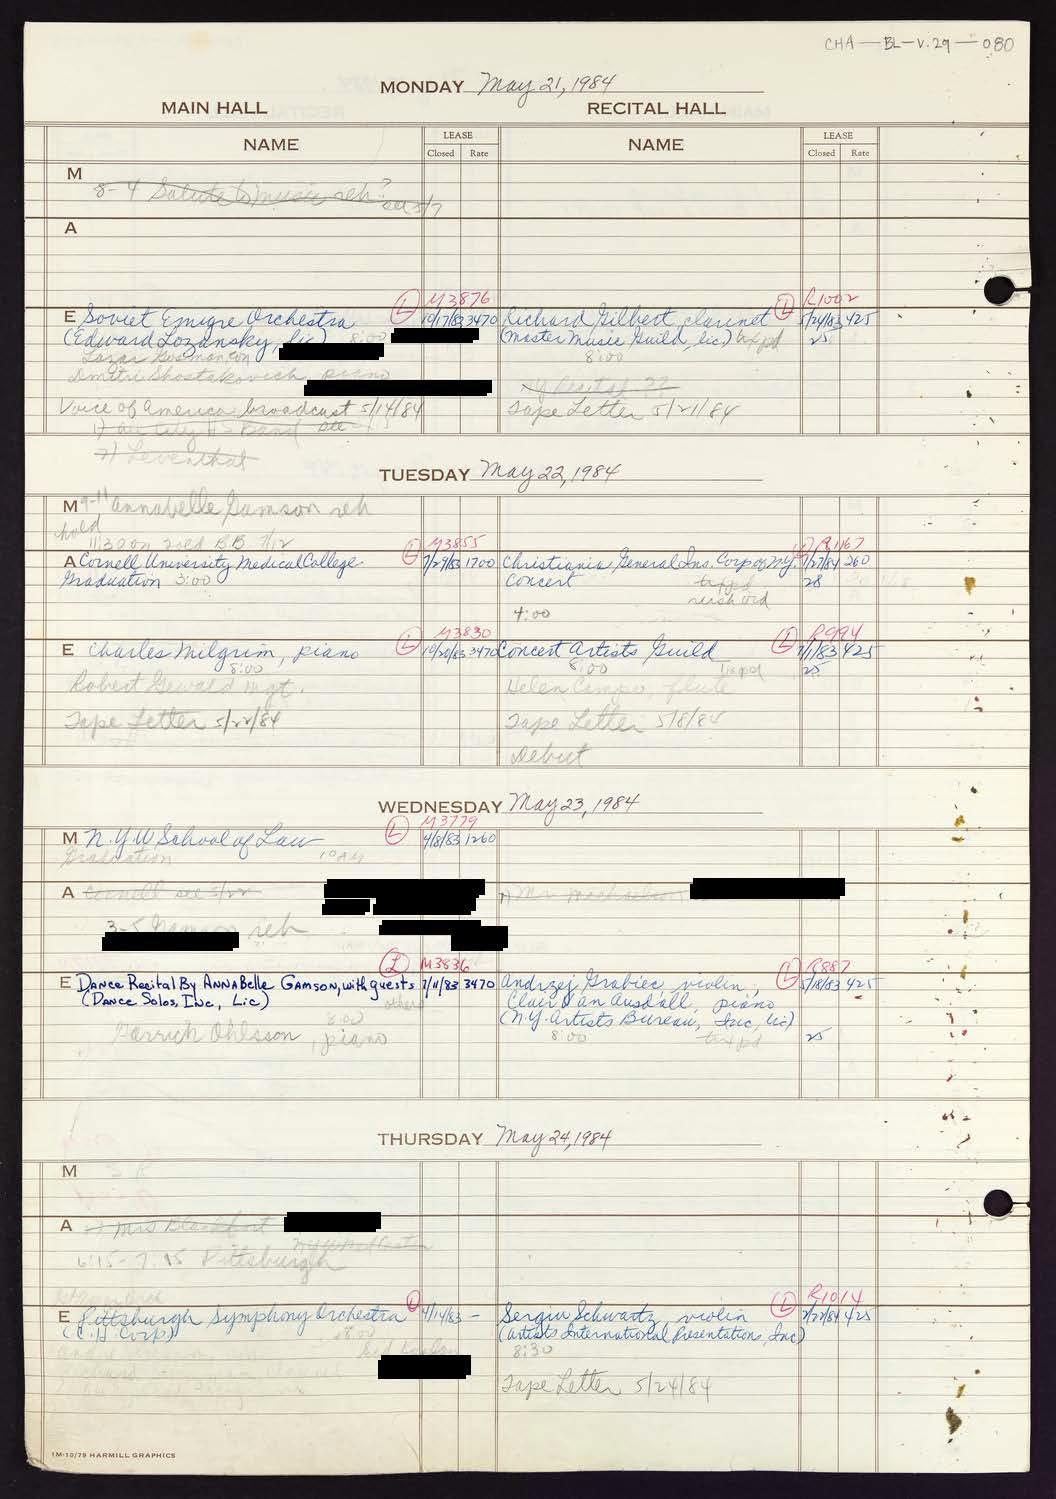 CHA — BL — V.29 — 080
MONDAY May 21, 1984
MAIN HALL RECITAL HALL
NAME LEASE NAME LEASE
Closed Rate Closed Rate
M
8-4 Salute to music reh?
see 5/7
A
L M3876 L R1002
E Soviet Emigre Orchestra 10/17/83 3470 Richard Gilbert, clarinet 5/24/83 425
(Edward Lozansky, lic) 8:00 (Master Music Guild, lic) txpd 25
Lazar Gosman, con 8:00
Dmitri Shostakovich, piano
Voice of America broadcast 5/14/84 Tape Letter 5/21/84
2) Leventhal
TUESDAY May 22, 1984
M 9-11 Annabelle Gamson reh
hold
11:30 on hold BB 7/12
L M3855 L R1167
A Cornell University Medical College 7/29/83 1700 Christiania General Ins. Corp of N.Y. 2/27/84 260
Graduation 3:00 Concert txpd 28
4:00
L M3830 L R994
E Charles Milgrim, piano 10/20/83 3470 Concert Artists Guild 7/1/83 425
8:00 8:00 txpd 25
Robert Gewald mgt. Helen Campo, flute
Tape Letter 5/22/84 Tape Letter 5/8/84
Debut
WEDNESDAY May 23, 1984
L M3779
M N.Y.U School of Law 4/8/83 1260
Graduation 10 AM
A Cornell see 5/22
3-5 Gamson reh
L M3836 L R887
E Dance Recital By AnnaBelle Gamson, with guests 7/11/83 3470 Andrzej Grabiec, violin, 5/18/83 425
(Dance Solos, Inc, Lic) others Clair Van Ausdall, piano
8:00 (N.Y. Artists Bureau, Inc, lic)
Garrick Ohlsson, piano 8:00 txpd 25
THURSDAY May 24, 1984
M
A
6:15 - 7:15 Pittsburgh
L R1014
E Pittsburgh Symphony Orchestra L 4/14/83 - Sergiu Schwartz, violin 2/27/84 425
(C.H Corp) (Artists International Presentations, Inc)
8:00 8:30
Tape Letter 5/24/84
1M-10/79 HARMILL GRAPHICS